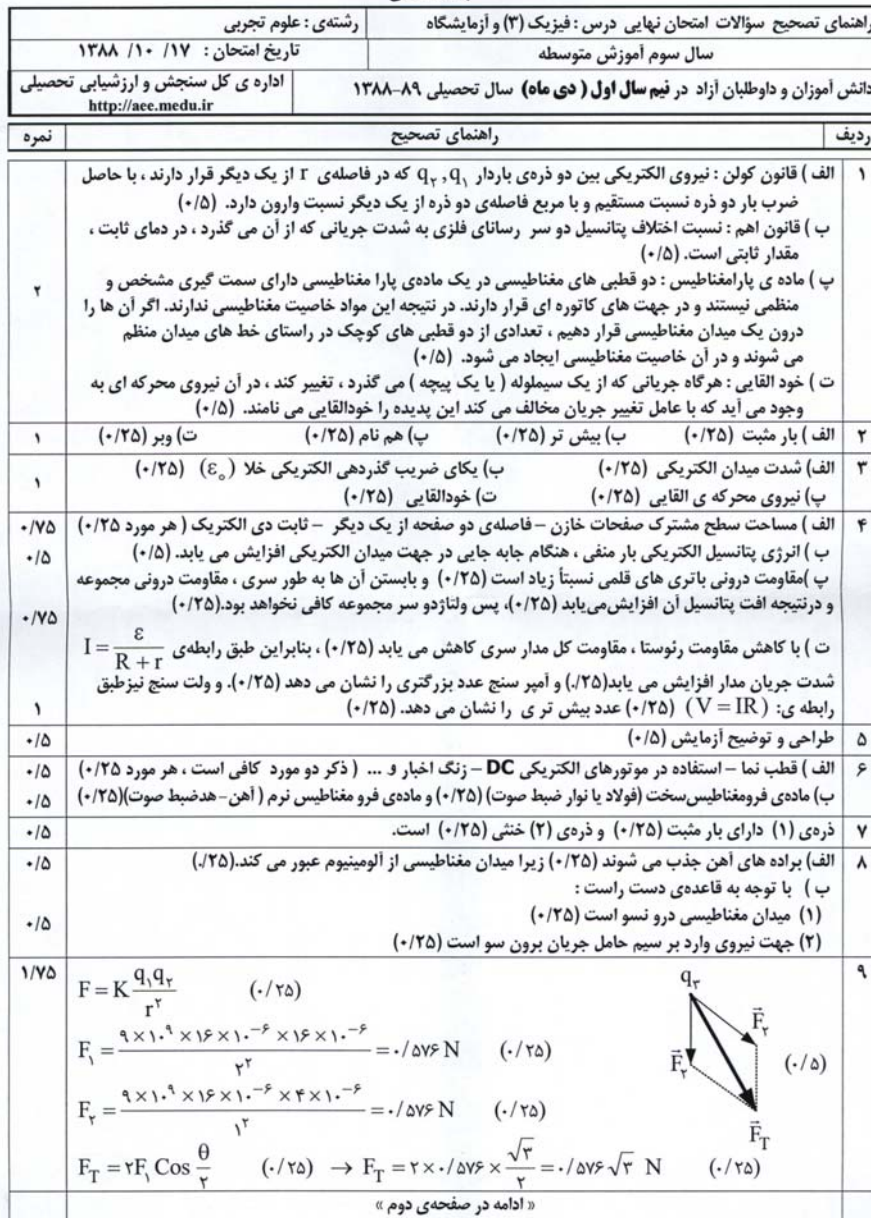 راهنمای تصحیح سؤالات امتحان نهایی درس : فیزیک (۳) و آزمایشگاه
رشته‌ی : علوم تجربی
سال سوم آموزش متوسطه
تاریخ امتحان : ۱۷/ ۱۰/ ۱۳۸۸
دانش آموزان و داوطلبان آزاد در نیم سال اول ( دی ماه) سال تحصیلی ۸۹–۱۳۸۸
اداره ی کل سنجش و ارزشیابی تحصیلی
http://aee.medu.ir
ردیف
راهنمای تصحیح
نمره
۱
الف ) قانون کولن : نیروی الکتریکی بین دو ذره‌ی باردار q۲ , q۱ که در فاصله‌ی r از یک دیگر قرار دارند ، با حاصل
ضرب بار دو ذره نسبت مستقیم و با مربع فاصله‌ی دو ذره از یک دیگر نسبت وارون دارد. (۰/۵)
ب ) قانون اهم : نسبت اختلاف پتانسیل دو سر رسانای فلزی به شدت جریانی که از آن می گذرد ، در دمای ثابت ،
مقدار ثابتی است. (۰/۵)
پ ) ماده ی پارامغناطیس : دو قطبی های مغناطیسی در یک ماده‌ی پارا مغناطیسی دارای سمت گیری مشخص و
منظمی نیستند و در جهت های کاتوره ای قرار دارند. در نتیجه این مواد خاصیت مغناطیسی ندارند. اگر آن ها را
درون یک میدان مغناطیسی قرار دهیم ، تعدادی از دو قطبی های کوچک در راستای خط های میدان منظم
می شوند و در آن خاصیت مغناطیسی ایجاد می شود. (۰/۵)
ت ) خود القایی : هرگاه جریانی که از یک سیملوله ( یا یک پیچه ) می گذرد ، تغییر کند ، در آن نیروی محرکه ای به
وجود می آید که با عامل تغییر جریان مخالف می کند این پدیده را خودالقایی می نامند. (۰/۵)
۲
۲
الف ) بار مثبت (۰/۲۵) ب) بیش تر (۰/۲۵) پ) هم نام (۰/۲۵) ت) وبر (۰/۲۵)
۱
۳
الف) شدت میدان الکتریکی (۰/۲۵) ب) یکای ضریب گذردهی الکتریکی خلا (ε۰) (۰/۲۵)
پ) نیروی محرکه ی القایی (۰/۲۵) ت) خودالقایی (۰/۲۵)
۱
۴
الف ) مساحت سطح مشترک صفحات خازن – فاصله‌ی دو صفحه از یک دیگر – ثابت دی الکتریک ( هر مورد ۰/۲۵)
۰/۷۵
ب ) انرژی پتانسیل الکتریکی بار منفی ، هنگام جابه جایی در جهت میدان الکتریکی افزایش می یابد. (۰/۵)
۰/۵
پ )مقاومت درونی باتری های قلمی نسبتاً زیاد است (۰/۲۵) و بابستن آن ها به طور سری ، مقاومت درونی مجموعه
و درنتیجه افت پتانسیل آن افزایش‌می‌یابد (۰/۲۵)، پس ولتاژدو سر مجموعه کافی نخواهد بود.(۰/۲۵)
۰/۷۵
ت ) با کاهش مقاومت رئوستا ، مقاومت کل مدار سری کاهش می یابد (۰/۲۵) ، بنابراین طبق رابطه‌ی I = ε / (R + r)
شدت جریان مدار افزایش می یابد(۰/۲۵) و آمپر سنج عدد بزرگتری را نشان می دهد (۰/۲۵). و ولت سنج نیزطبق
رابطه ی: (V = IR) (۰/۲۵) عدد بیش تر ی را نشان می دهد. (۰/۲۵)
۱
۵
طراحی و توضیح آزمایش (۰/۵)
۰/۵
۶
الف ) قطب نما – استفاده در موتورهای الکتریکی DC – زنگ اخبار و ... ( ذکر دو مورد کافی است ، هر مورد ۰/۲۵)
۰/۵
ب) ماده‌ی فرومغناطیس‌سخت (فولاد یا نوار ضبط صوت) (۰/۲۵) و ماده‌ی فرو مغناطیس نرم ( آهن-هدضبط صوت)(۰/۲۵)
۰/۵
۷
ذره‌ی (۱) دارای بار مثبت (۰/۲۵) و ذره‌ی (۲) خنثی (۰/۲۵) است.
۰/۵
۸
الف) براده های آهن جذب می شوند (۰/۲۵) زیرا میدان مغناطیسی از آلومینیوم عبور می کند.(۲۵/.)
۰/۵
ب ) با توجه به قاعده‌ی دست راست :
(۱) میدان مغناطیسی درو نسو است (۰/۲۵)
۰/۵
(۲) جهت نیروی وارد بر سیم حامل جریان برون سو است (۰/۲۵)
۹
۱/۷۵
F = K q۱q۲ / r۲ (۰/۲۵)
F۱ = ۹×۱۰^۹ ×۱۶×۱۰^−۶ ×۱۶×۱۰^−۶ / ۲^۲ = ۰/۵۷۶ N (۰/۲۵)
F۲ = ۹×۱۰^۹ ×۱۶×۱۰^−۶ ×۴×۱۰^−۶ / ۱^۲ = ۰/۵۷۶ N (۰/۲۵)
F_T = ۲F۱ Cos θ/۲ (۰/۲۵) → F_T = ۲×۰/۵۷۶× √۳/۲ = ۰/۵۷۶√۳ N (۰/۲۵)
q۳
F۲
F۲
(۰/۵)
F_T
« ادامه در صفحه‌ی دوم »